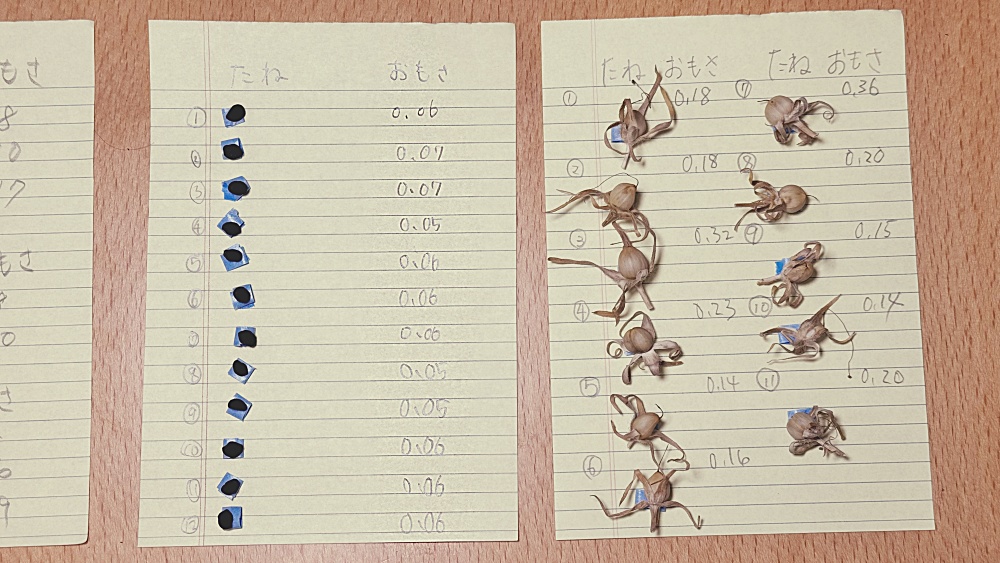 もさ
8
0
17
もさ
0
さ
0
9
たね おもさ
① 0.06
② 0.07
③ 0.07
④ 0.05
⑤ 0.06
⑥ 0.06
⑦ 0.06
⑧ 0.05
⑨ 0.05
⑩ 0.06
⑪ 0.06
⑫ 0.06
たね おもさ たね おもさ
① 0.18 ⑦ 0.36
② 0.18 ⑧ 0.20
③ 0.32 ⑨ 0.15
④ 0.23 ⑩ 0.14
⑤ 0.14 ⑪ 0.20
⑥ 0.16